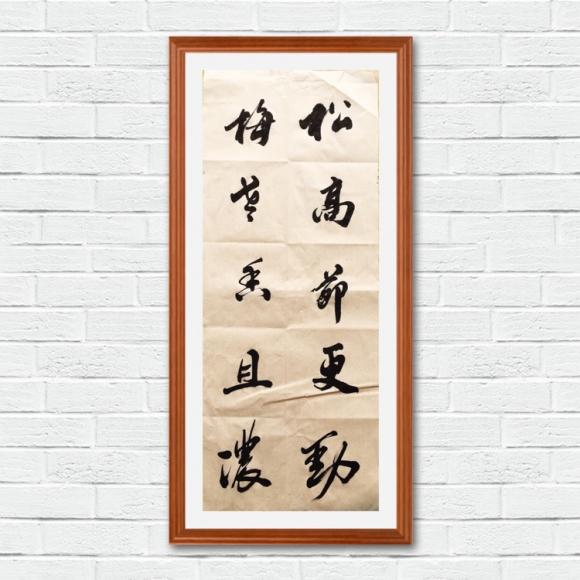 松高節更勁
梅老香且濃